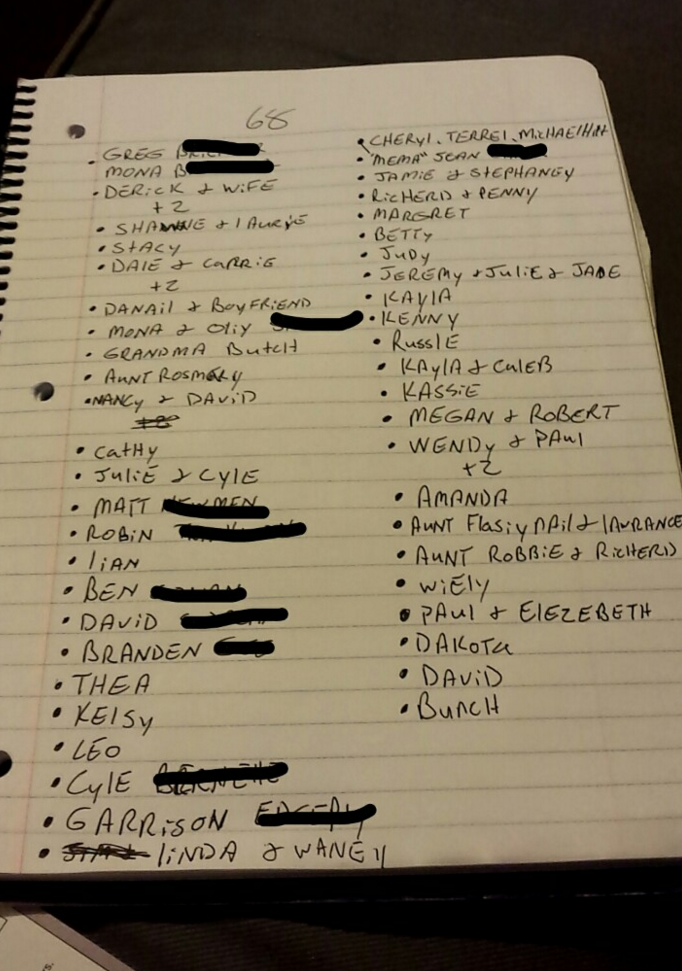 68
• GREG
MONA B
• DERICK & WIFE
+2
• SHAWNE & lAURIE
• STACY
• DAlE & CARRIE
+2
• DANAil & BOYFRIEND
• MONA & OliY
• GRANDMA Butch
• AUNT ROSMARY
• NANCY & DAVID
• CATHY
• JULIE & CYLE
• MATT
• ROBIN
• lIAN
• BEN
• DAVID
• BRANDEN
• THEA
• KElSy
• LEO
• CYlE
• GARRISON
• lINDA & WANE
• CHERYl, TERREl, MICHAEl
• "MEMA" JEAN
• JAMIE & STEPHANEY
• RICHERD & PENNY
• MARGRET
• BETTY
• JUDY
• JEREMY & JULIE & JADE
• KAYlA
• KENNY
• RUSSlE
• KAYlA & CUlEB
• KASSIE
• MEGAN & ROBERT
• WENDY & PAUl
+2
• AMANDA
• AUNT & lAURANCE
• AUNT ROBBIE & RICHERD
• WIElY
• PAUl & ElEZEBETH
• DAKOTA
• DAVID
• BUNCH